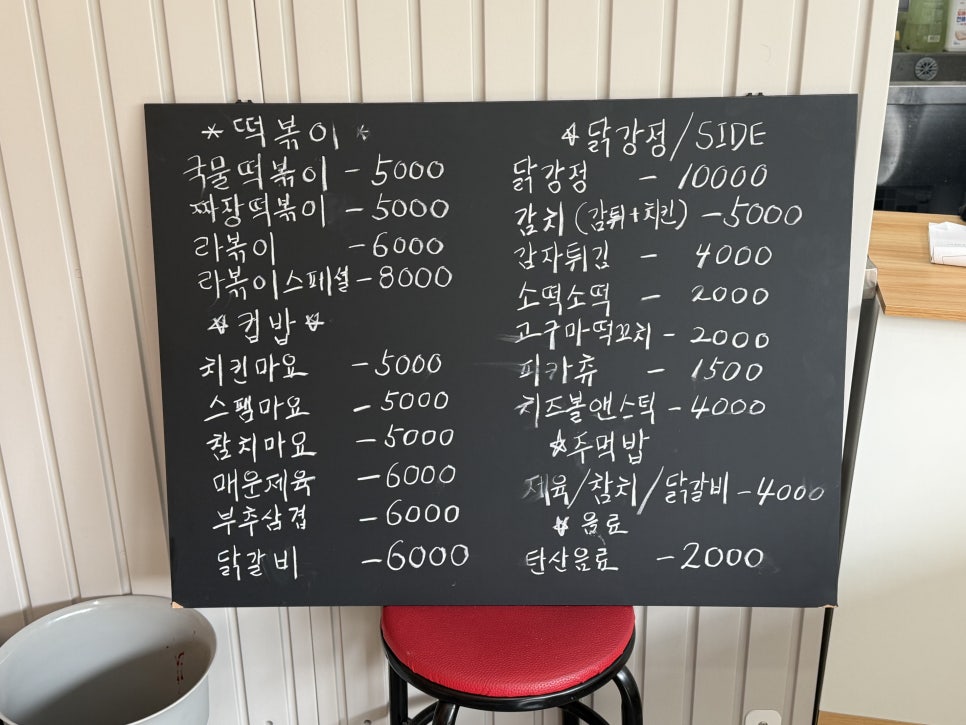 * 떡볶이 *
국물떡볶이 - 5000
짜장떡볶이 - 5000
라볶이 - 6000
라볶이스페셜 - 8000
☆컵밥☆
치킨마요 - 5000
스팸마요 - 5000
참치마요 - 5000
매운제육 - 6000
부추삼겹 - 6000
닭갈비 - 6000
☆닭강정/SIDE
닭강정 - 10000
감치 (감튀+치킨) - 5000
감자튀김 - 4000
소떡소떡 - 2000
고구마떡꼬치 - 2000
피카츄 - 1500
치즈볼앤스틱 - 4000
☆주먹밥
제육/참치/닭갈비 - 4000
☆음료
탄산음료 - 2000